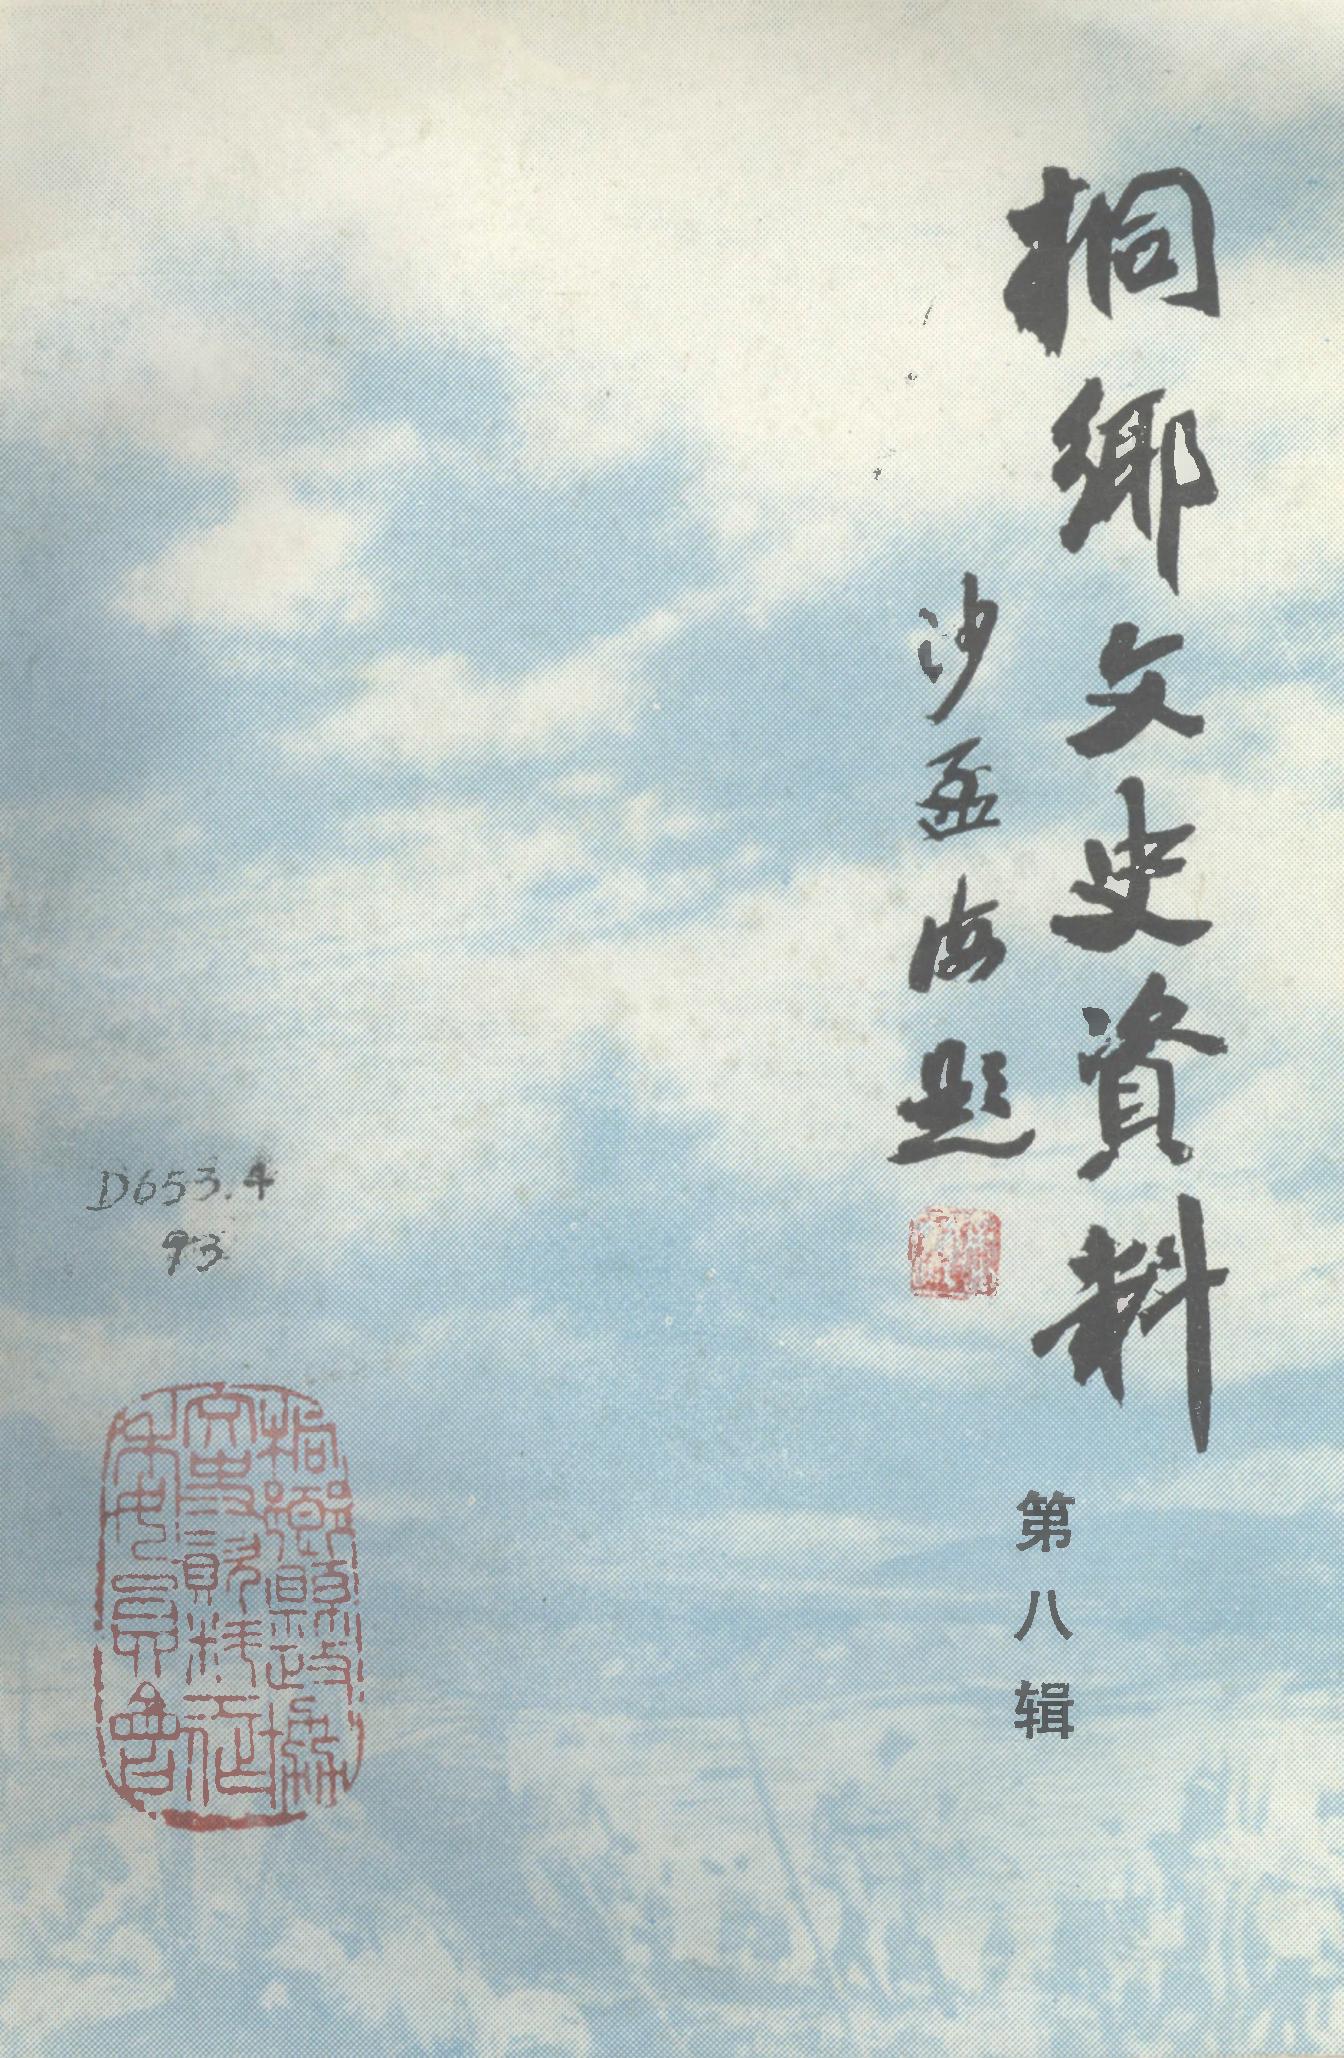 桐鄉文史資料
沙孟海題
第八辑
D653.4
93
桐鄉縣政協
文史資料征
集委員會